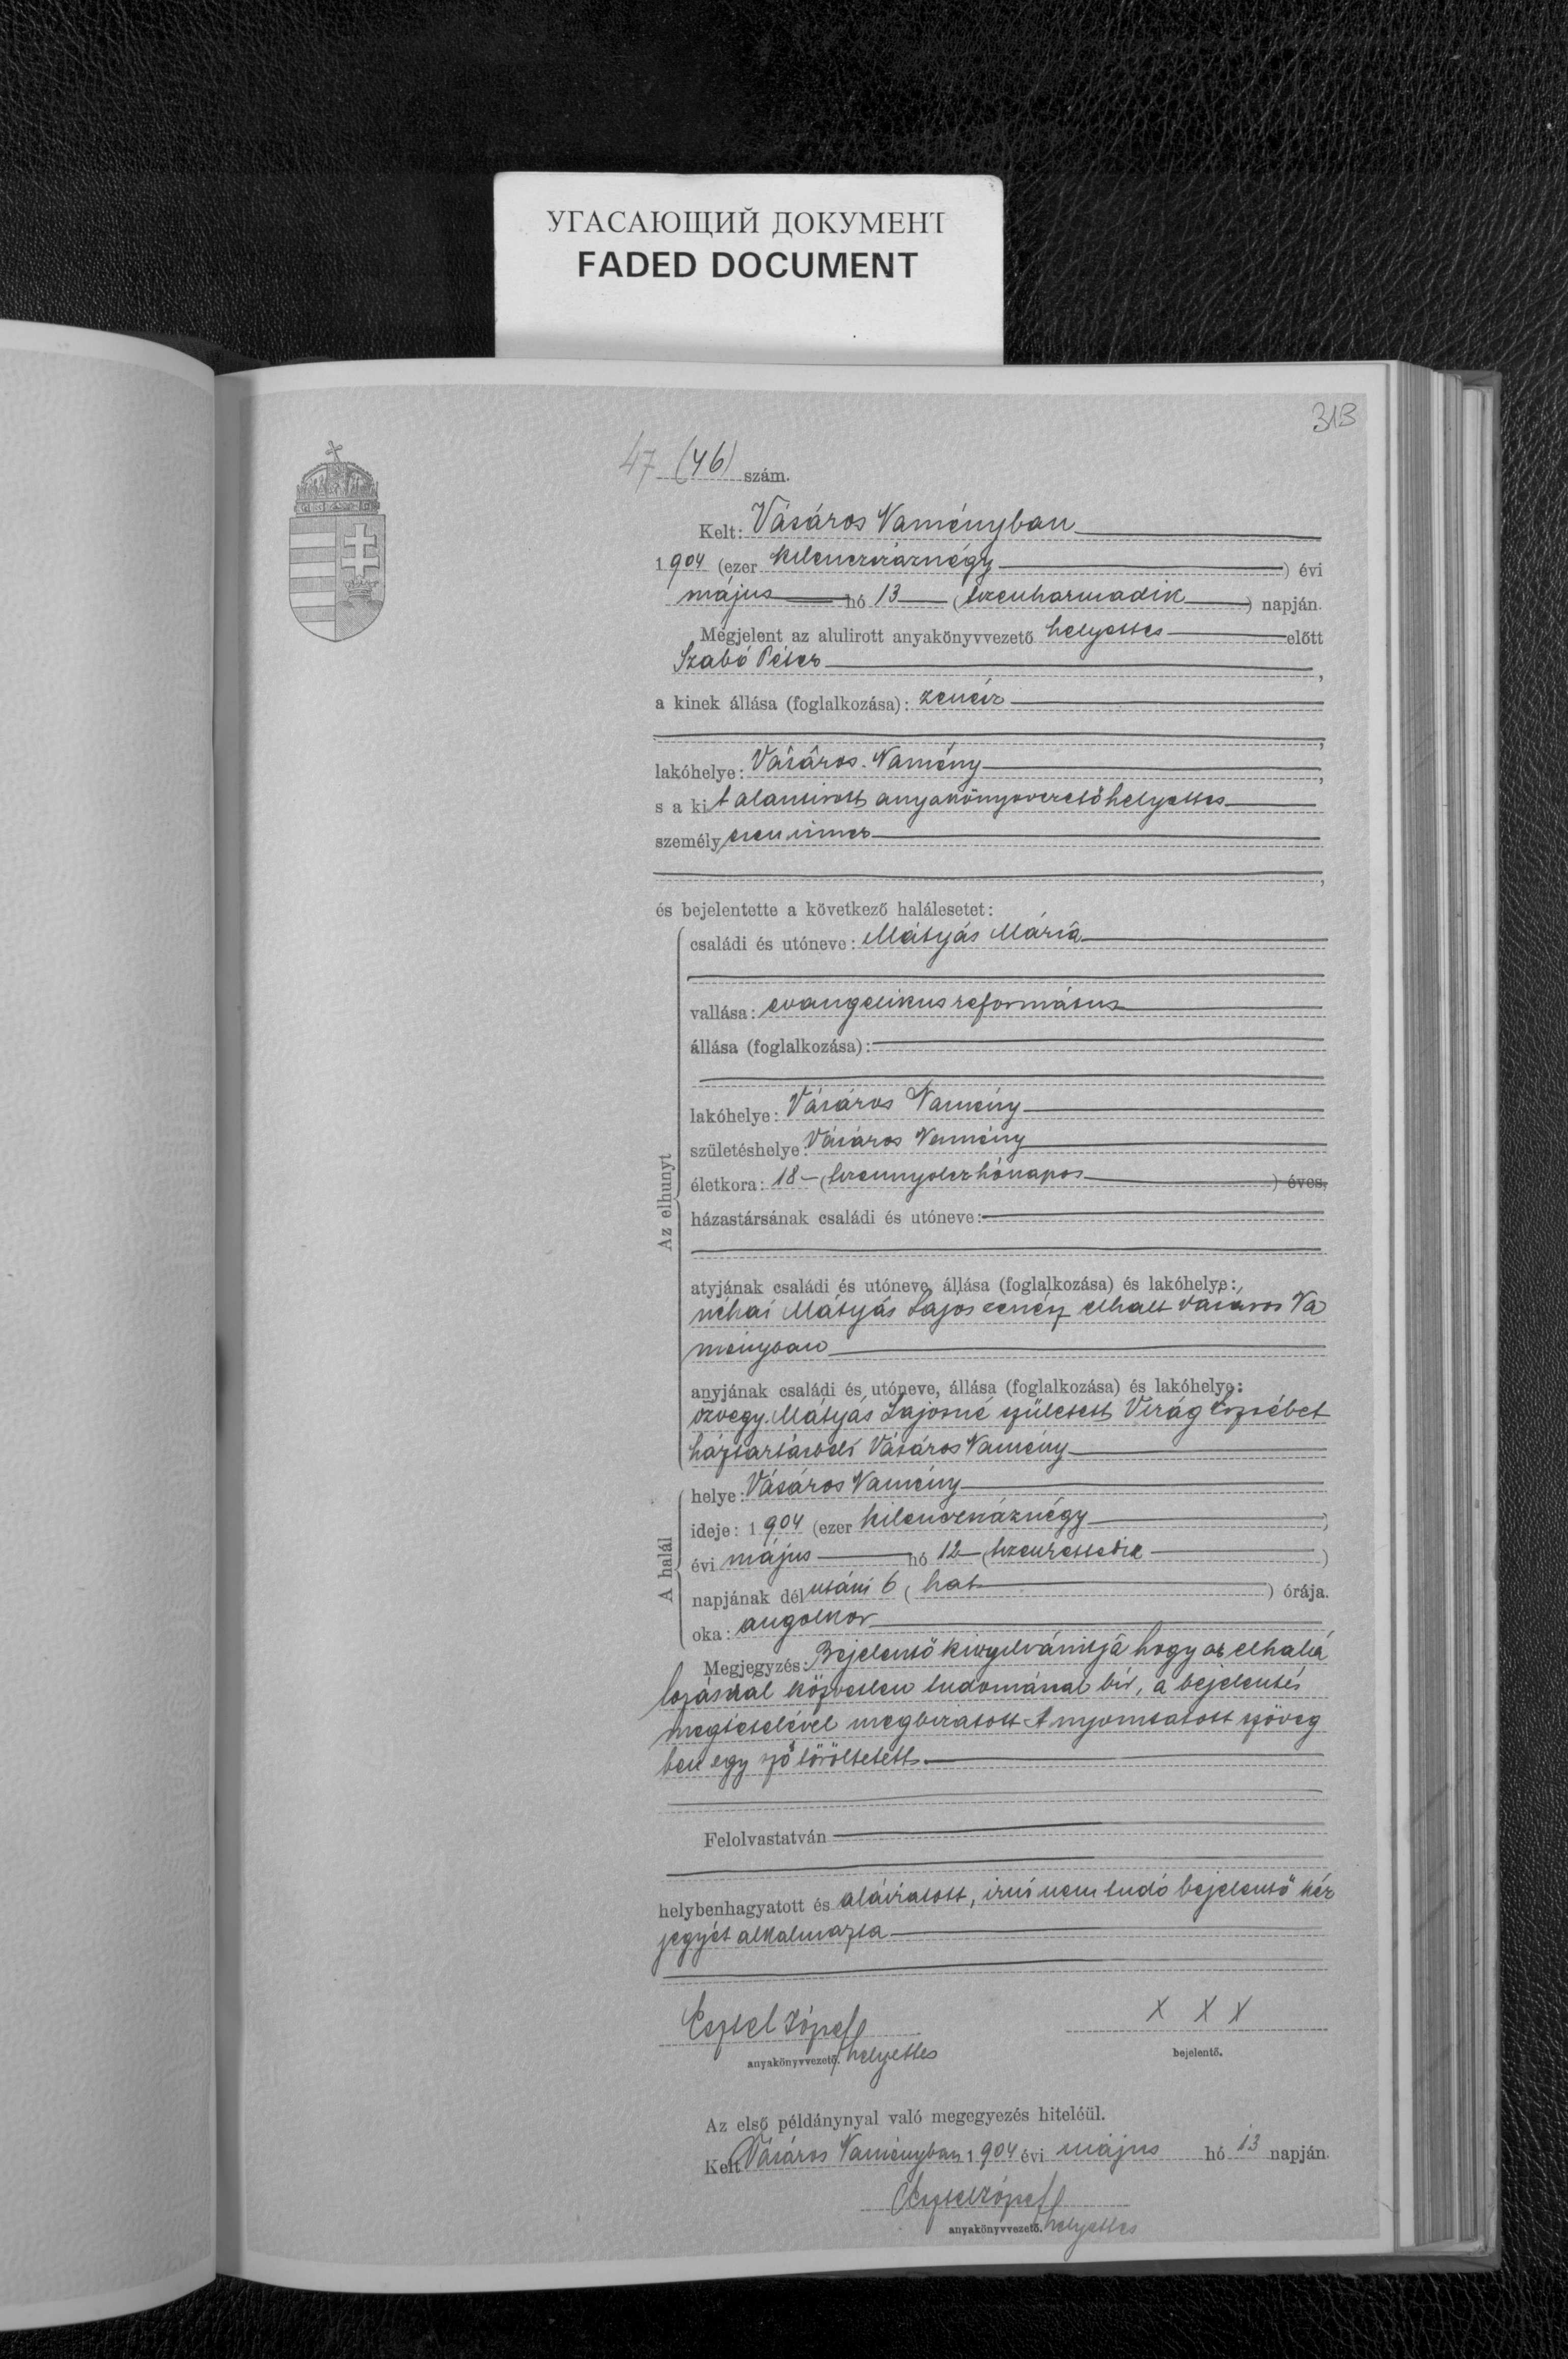 УГАСАЮЩИЙ ДОКУМЕНТ
FADED DOCUMENT
313
47 (46) szám.
Kelt: Vásáros Naményban
1904 (ezer kilencszáznégy) évi
május hó 13 (tizenharmadik) napján.
Megjelent az alulirott anyakönyvvezető helyettes előtt
Szabó Péter,
a kinek állása (foglalkozása): zenész
,
lakóhelye: Vásáros Namény,
s a kit alantirott anyakönyvvezető helyettes
személyesen ismer
,
és bejelentette a következő halálesetet:
Az elhunyt
családi és utóneve: Mátyás Mária
vallása: evangelikus református
állása (foglalkozása):
lakóhelye: Vásáros Namény
születéshelye: Vásáros Namény
életkora: 18 (tizennyolcz hónapos) éves,
házastársának családi és utóneve:
atyjának családi és utóneve, állása (foglalkozása) és lakóhelye:
néhai Mátyás Lajos zenész elhalt Vásáros Na
ményban
anyjának családi és utóneve, állása (foglalkozása) és lakóhelye:
özvegy Mátyás Lajosné született Virág Erzsébet
háztartásbeli Vásáros Namény
A halál
helye: Vásáros Namény
ideje: 1904 (ezer kilencszáznégy)
évi május hó 12 (tizenkettedik)
napjának délutáni 6 (hat) órája.
oka: angolkór
Megjegyzés: Bejelentő kinyilvánítja hogy az elhalá
lozásról közvetlen tudomással bír, a bejelentés
megtételével megbizatott A nyomtatott szöveg
ben egy szó töröltetett.
Felolvastatván
helybenhagyatott és aláiratott, irni nem tudó bejelentő kéz
jegyét alkalmazta
X X X
anyakönyvvezető. helyettes
bejelentő.
Az első példánynyal való megegyezés hiteléül.
Kelt Vásáros Naményban 1904 évi május hó 13 napján.
anyakönyvvezető. helyettes